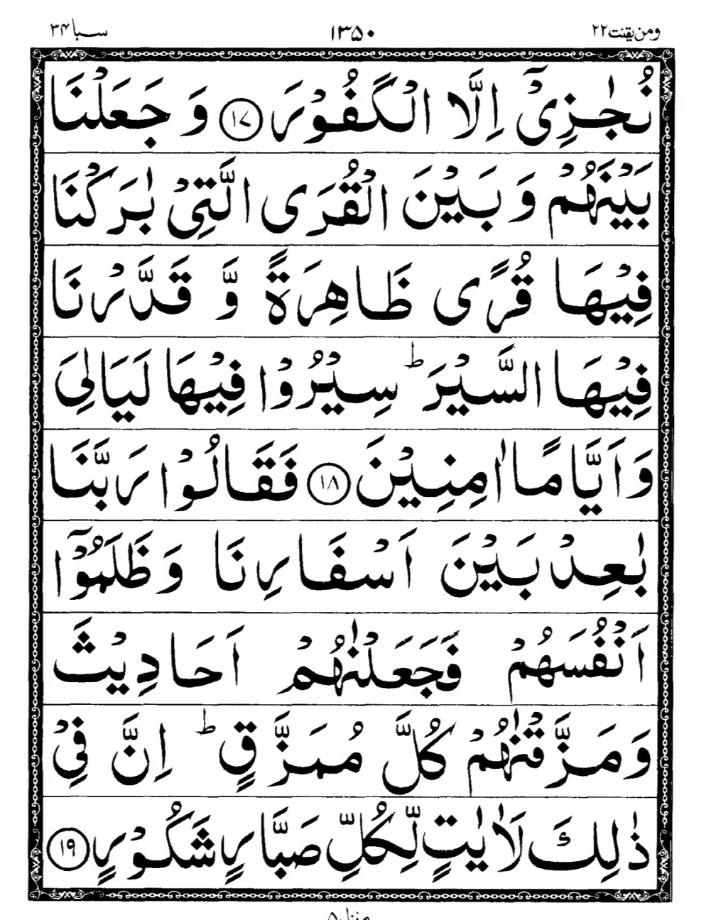 ومن یقنت ۲۲ ۱۳۵۰ سبا ۳۴
نُجٰزِیْۤ اِلَّا الْكَفُوْرَ ﴿۱۷﴾ وَ جَعَلْنَا
بَیْنَهُمْ وَ بَیْنَ الْقُرَی الَّتِیْ بٰرَكْنَا
فِیْهَا قُرًی ظَاهِرَةً وَّ قَدَّرْنَا
فِیْهَا السَّیْرَ ؕ سِیْرُوْا فِیْهَا لَیَالِیَ
وَ اَیَّامًا اٰمِنِیْنَ ﴿۱۸﴾ فَقَالُوْا رَبَّنَا
بٰعِدْ بَیْنَ اَسْفَارِنَا وَ ظَلَمُوْۤا
اَنْفُسَهُمْ فَجَعَلْنٰهُمْ اَحَادِیْثَ
وَ مَزَّقْنٰهُمْ كُلَّ مُمَزَّقٍ ؕ اِنَّ فِیْ
ذٰلِكَ لَاٰیٰتٍ لِّكُلِّ صَبَّارٍ شَكُوْرٍ ﴿۱۹﴾
منزل ۵